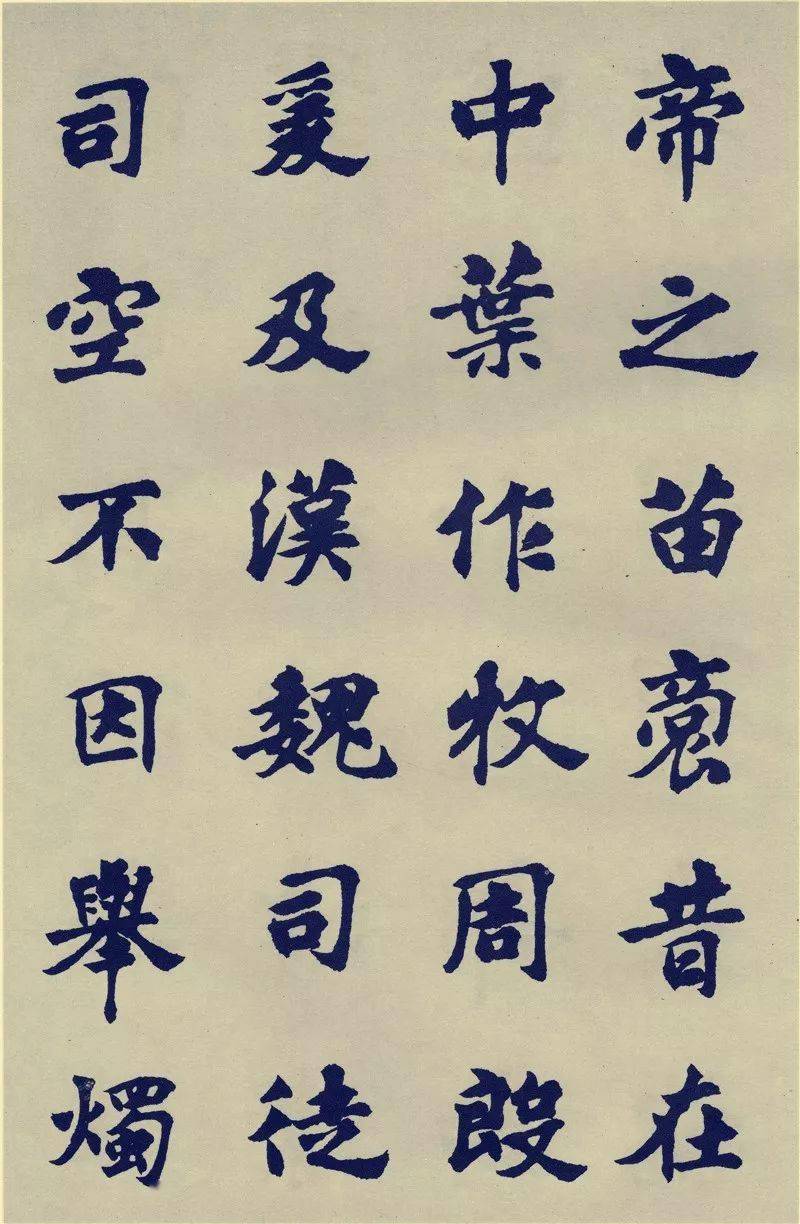 帝之苗裔昔在
中葉作牧周殷
爰及漢魏司徒
司空不因舉燭